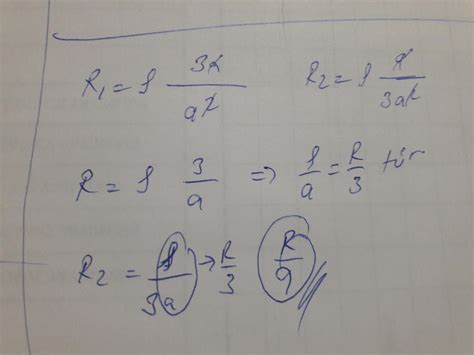 R₁ = ρ 3ℓ/aℓ    R₂ = ρ ℓ/3aℓ
R = ρ 3/a ⇒ ρ/a = R/3 tür
R₂ = ρ/3a → R/3    R/9